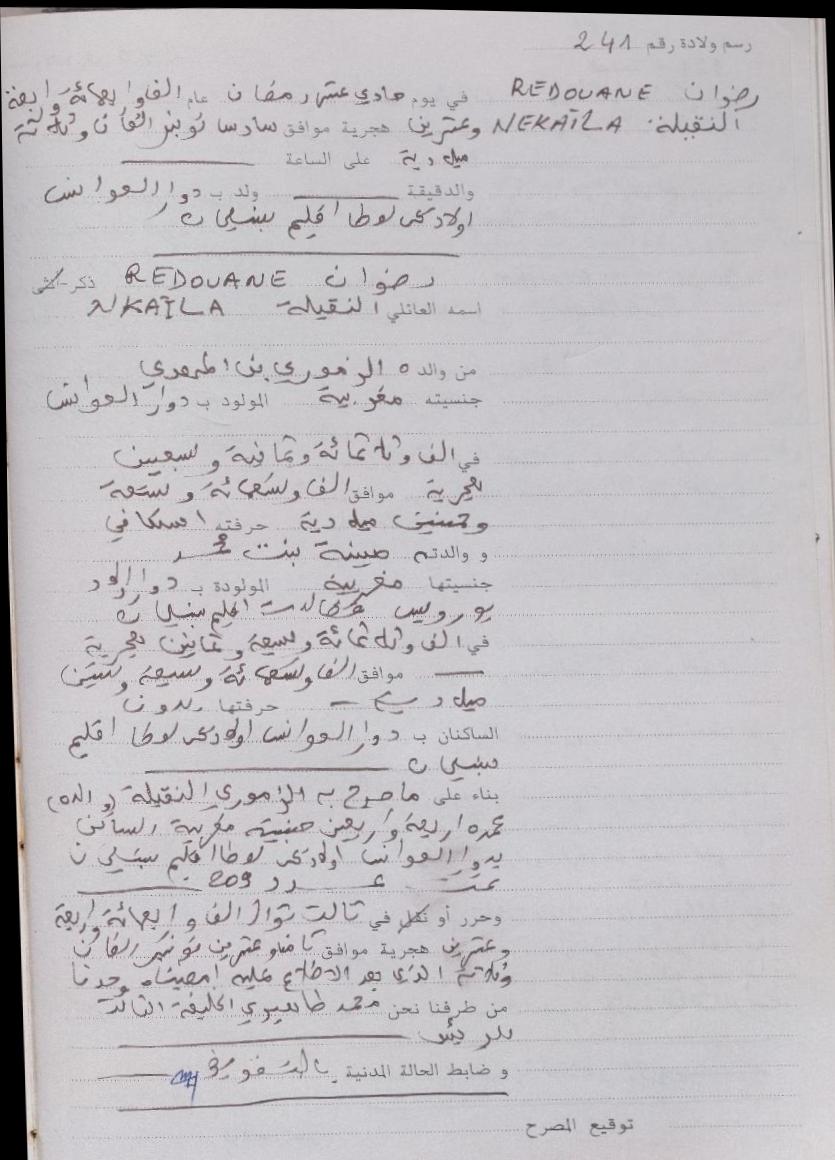 رسم ولادة رقم 241
رضوان REDOUANE في يوم حادي عشر رمضان عام الف واربعمائة واربعة
النقيلة NEKAÏLA وعشرين هجرية موافق سادس نونبر الفان وثلاثة
ميلادية على الساعة
والدقيقة ولد ب دوار العوانس
اولاد يحي لوطا اقليم بنسليمان
رضوان REDOUANE ذكر-انثى
اسمه العائلي النقيلة NKAÏLA
من والده الزموري بن المهدي
جنسيته مغربية المولود ب دوار العوانس
في الف وثلاثمائة وثمانية وسبعين
هجرية موافق الف وتسعمائة وتسعة
وخمسين ميلادية حرفته اسكافي
و والدته مينة بنت محمد
جنسيتها مغربية المولودة ب دوار اولاد
بورويس اقليم بنسليمان
في الف وثلاثمائة وسبعة وثمانين هجرية
موافق الف وتسعمائة وسبعة وستين
ميلادية حرفتها بدون
الساكنان ب دوار العوانس اولاد يحي لوطا اقليم
بنسليمان
بناء على ما صرح به الزموري النقيلة (والده)
عمره اربعة واربعين جنسيته مغربية الساكن
بدوار العوانس اولاد يحي لوطا اقليم بنسليمان
تحت عدد 209
وحرر أو نقل في ثالث شوال الف واربعمائة واربعة
وعشرين هجرية موافق ثامن وعشرين نونبر الفان
وثلاثة الذي بعد الاطلاع عليه امضيناه وحدنا
من طرفنا نحن محمد الخليفة الثالث
للرئيس
و ضابط الحالة المدنية بالتفويض
توقيع المصرح